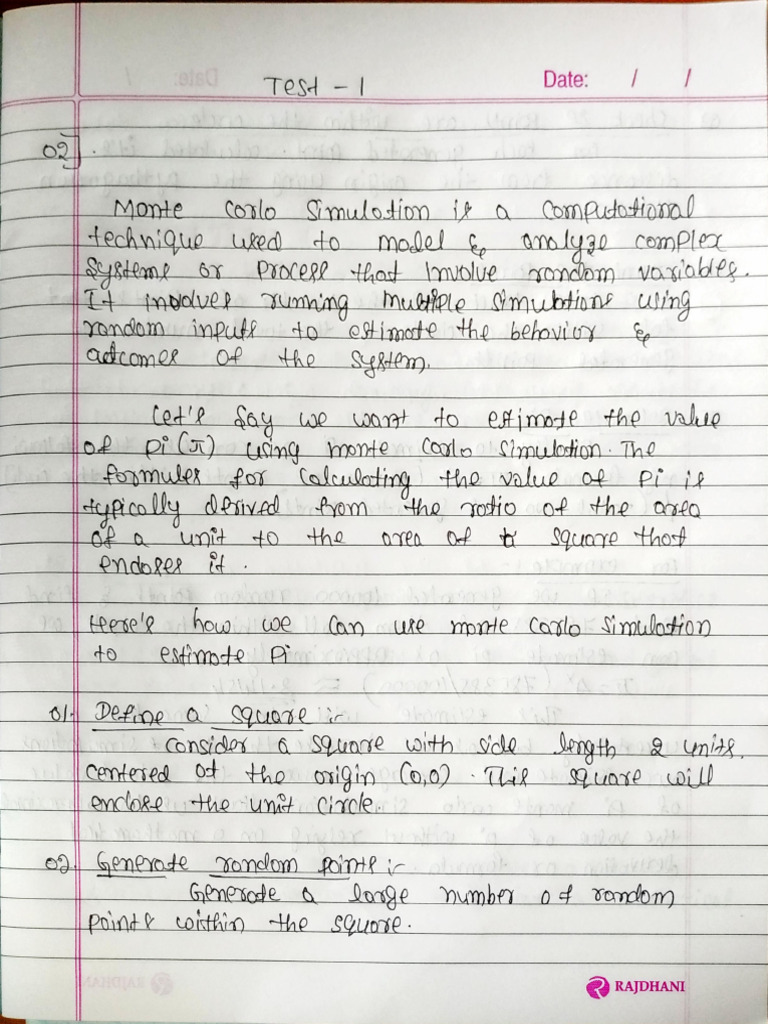 Test - 1
Date: / /
02].
Monte Carlo Simulation is a computational
technique used to model & analyze complex
systems or process that involve random variables.
It involves running multiple simulations using
random inputs to estimate the behavior &
outcomes of the system.
Let's say we want to estimate the value
of pi (π) using monte carlo simulation. The
formules for calculating the value of Pi is
typically derived from the ratio of the area
of a unit to the area of square that
encloses it.
Here's how we can use monte carlo simulation
to estimate Pi
01. Define a square :-
Consider a square with side length 2 units.
centered at the origin (0,0). This square will
enclose the unit circle.
02. Generate random points :-
Generate a large number of random
points within the square.
RAJDHANI